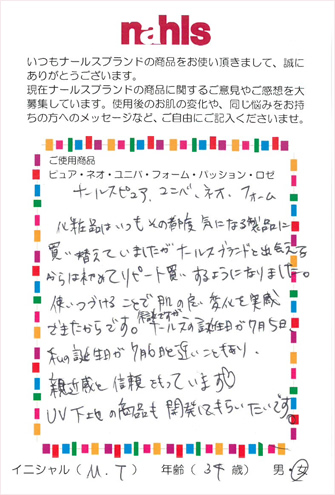 nahls
いつもナールスブランドの商品をお使い頂きまして、誠に
ありがとうございます。
現在ナールスブランドの商品に関するご意見やご感想を大
募集しています。使用後のお肌の変化や、同じ悩みをお持
ちの方へのメッセージなど、ご自由にご記入くださいませ。
ご使用商品
ピュア・ネオ・ユニバ・フォーム・パッション・ロゼ
ナールスピュア、ユニバ、ネオ、フォーム
化粧品はいつもその都度気になる製品に
買い替えていましたがナールスブランドと出会えて
からは初めてリピート買いするようになりました。
使いつづけることで肌の良い変化を実感
できたからです。余談ですがナールスの誕生日が7月5日、
私の誕生日が7月6日と近いこともあり、
親近感と信頼をもっています♡
UV下地の商品も開発してもらいたいです。
イニシャル（M.T） 年齢（34歳） 男・女